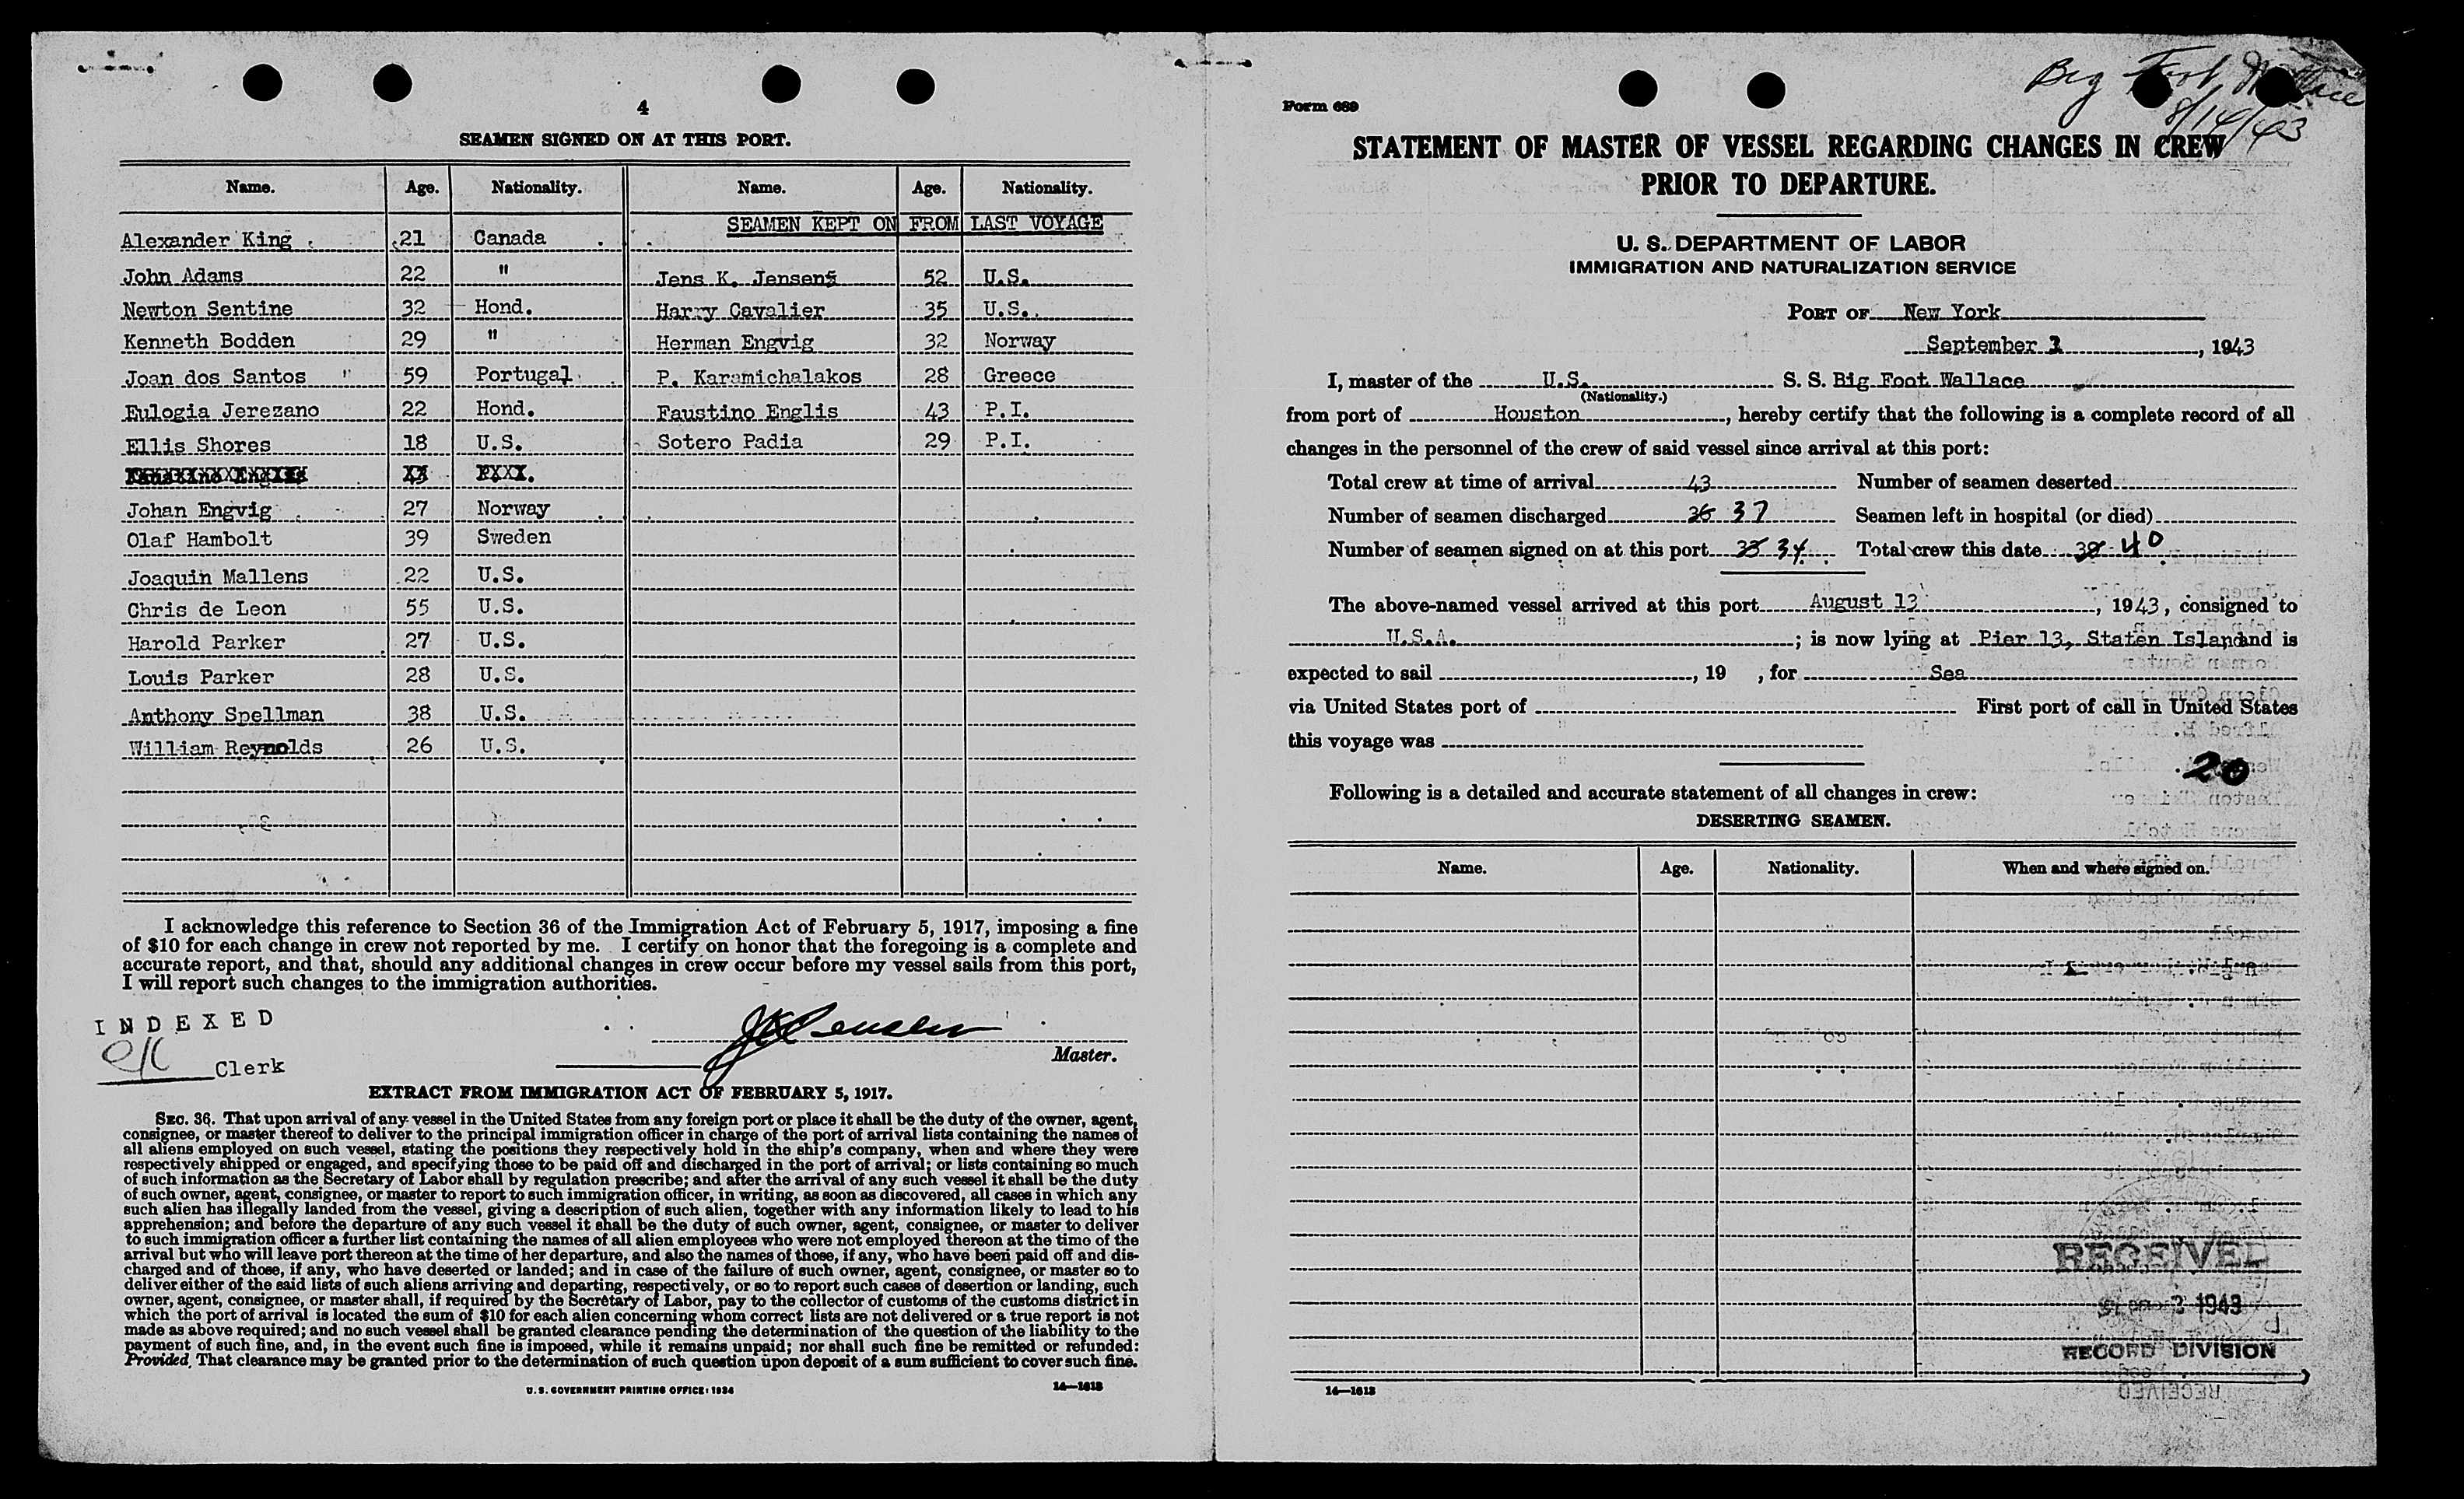 4
SEAMEN SIGNED ON AT THIS PORT.
Name. Age. Nationality. Name. Age. Nationality.
SEAMEN KEPT ON FROM LAST VOYAGE
Alexander King 21 Canada
John Adams 22 " Jens K. Jensen 52 U.S.
Newton Sentine 32 Hond. Harry Cavalier 35 U.S.
Kenneth Bodden 29 " Herman Engvig 32 Norway
Joan dos Santos 59 Portugal P. Karamichalakos 28 Greece
Eulogia Jerezano 22 Hond. Faustino Englis 43 P.I.
Ellis Shores 18 U.S. Sotero Padia 29 P.I.
Johan Engvig 27 Norway
Olaf Hambolt 39 Sweden
Joaquin Mallens 22 U.S.
Chris de Leon 55 U.S.
Harold Parker 27 U.S.
Louis Parker 28 U.S.
Anthony Spellman 38 U.S.
William Reynolds 26 U.S.
I acknowledge this reference to Section 36 of the Immigration Act of February 5, 1917, imposing a fine
of $10 for each change in crew not reported by me. I certify on honor that the foregoing is a complete and
accurate report, and that, should any additional changes in crew occur before my vessel sails from this port,
I will report such changes to the immigration authorities.
INDEXED
Clerk
Master.
EXTRACT FROM IMMIGRATION ACT OF FEBRUARY 5, 1917.
SEC. 36. That upon arrival of any vessel in the United States from any foreign port or place it shall be the duty of the owner, agent,
consignee, or master thereof to deliver to the principal immigration officer in charge of the port of arrival lists containing the names of
all aliens employed on such vessel, stating the positions they respectively hold in the ship's company, when and where they were
respectively shipped or engaged, and specifying those to be paid off and discharged in the port of arrival; or lists containing so much
of such information as the Secretary of Labor shall by regulation prescribe; and after the arrival of any such vessel it shall be the duty
of such owner, agent, consignee, or master to report to such immigration officer, in writing, as soon as discovered, all cases in which any
such alien has illegally landed from the vessel, giving a description of such alien, together with any information likely to lead to his
apprehension; and before the departure of any such vessel it shall be the duty of such owner, agent, consignee, or master to deliver
to such immigration officer a further list containing the names of all alien employees who were not employed thereon at the time of the
arrival but who will leave port thereon at the time of her departure, and also the names of those, if any, who have been paid off and dis-
charged and of those, if any, who have deserted or landed; and in case of the failure of such owner, agent, consignee, or master so to
deliver either of the said lists of such aliens arriving and departing, respectively, or so to report such cases of desertion or landing, such
owner, agent, consignee, or master shall, if required by the Secretary of Labor, pay to the collector of customs of the customs district in
which the port of arrival is located the sum of $10 for each alien concerning whom correct lists are not delivered or a true report is not
made as above required; and no such vessel shall be granted clearance pending the determination of the question of the liability to the
payment of such fine, and, in the event such fine is imposed, while it remains unpaid; nor shall such fine be remitted or refunded:
Provided, That clearance may be granted prior to the determination of such question upon deposit of a sum sufficient to cover such fine.
U.S. GOVERNMENT PRINTING OFFICE: 1934 14—1613
Big Foot Wallace
8/14/43
Form 689
STATEMENT OF MASTER OF VESSEL REGARDING CHANGES IN CREW
PRIOR TO DEPARTURE.
U. S. DEPARTMENT OF LABOR
IMMIGRATION AND NATURALIZATION SERVICE
PORT OF New York
September , 1943
I, master of the U.S. S. S. Big Foot Wallace
(Nationality.)
from port of Houston, hereby certify that the following is a complete record of all
changes in the personnel of the crew of said vessel since arrival at this port:
Total crew at time of arrival 43 Number of seamen deserted
Number of seamen discharged 36 37 Seamen left in hospital (or died)
Number of seamen signed on at this port 34 Total crew this date 40
The above-named vessel arrived at this port August 13, 1943, consigned to
U.S.A.; is now lying at Pier 13, Staten Island and is
expected to sail , 19 , for Sea
via United States port of First port of call in United States
this voyage was
20
Following is a detailed and accurate statement of all changes in crew:
DESERTING SEAMEN.
Name. Age. Nationality. When and where signed on.
RECEIVED
1943
RECORD DIVISION
14—1613